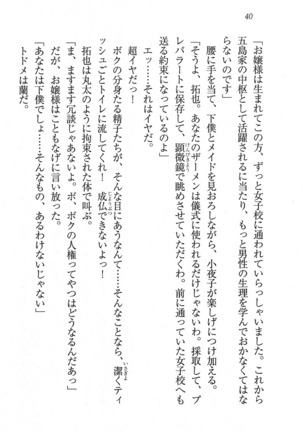 40
「お嬢様は生まれてこの方、ずっと女子校に通われていらっしゃいます。これから
五島家の中枢として活躍されるに当たり、もっと男性の生理を学んでおかなくてはな
らないのです」
腰に手を当て、下僕とメイドを見おろしながら、小夜子が楽しげにつけ加える。
「そうよ、拓也。あなたのザーメンは儀式に使われるだけじゃないわ。採取して、プ
レパラートに保存して、顕微鏡で眺めさせていただくわ。前に通っていた女子校へも
送る約束になっているのよ」
エッ……それはイヤだ。
超イヤだ!
ボクの分身たる精子たちが、そんな目にあうなんて……そんなことなら、潔くティ
ッシュごとトイレに流してくれ! 成仏できないよっ!
拓也は丸太のように拘束された体で叫ぶ。
「ま、ますます冗談じゃあないよ。ボ、ボクの人権ってやつはどうなるんだあっ」
だが、お嬢様はこともなげに言い放った。
「あなたは下僕でしょ。そんなもの、あるわけないじゃない」
トドメは蘭だ。